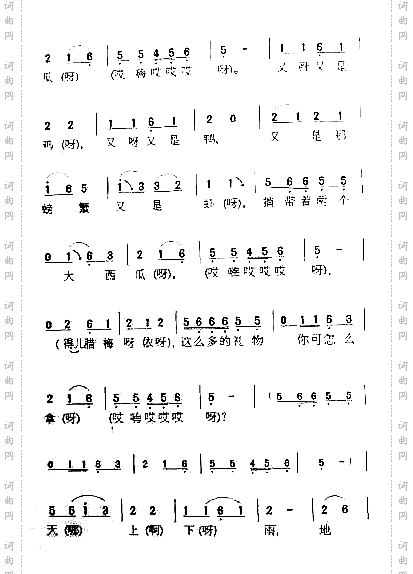 2 1 6 | 5 5 4 5 6 | 5 - | 1 1 6 1 |
瓜(呀) (哎 梅哎哎哎 呀)。 又呀又是
2 2 | 1 1 6 1 | 2 0 | 2 1 2 1 |
鸡(呀), 又呀又是 鸭, 又 是那
1 6 5 | 1 3 3 2 | 1 1 | 5 6 6 5 5 |
螃 蟹 又 是 虾(呀), 捎带着两个
0 1 6 3 | 2 1 6 | 5 5 4 5 6 | 5 - |
大 西 瓜(呀)。 (哎 哎哎哎 呀)。
0 2 6 1 | 2 1 2 | 5 6 6 6 5 5 | 0 1 6 3 |
(得儿腊 梅 呀 依呀), 这么多的礼 物 你可怎么
2 1 6 | 5 5 4 5 6 | 5 - | (5 6 6 5 5 |
拿(呀) (哎 哎哎哎 呀)?
0 1 1 6 3 | 2 1 6 | 5 5 4 5 6 | 5 - ) |
5 5 i 3 | 2 2 | 1 1 6 1 | 2 - | 2 6 |
天(哪) 上(啊) 下(呀) 雨, 地
词曲网
词曲网
词曲网
词曲网
词曲网
词曲网
词曲网
词曲网